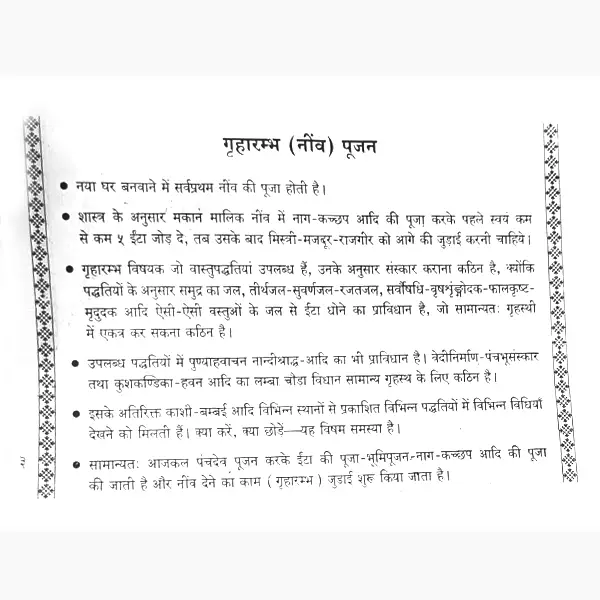 गृहारम्भ (नींव) पूजन
● नया घर बनवाने में सर्वप्रथम नींव की पूजा होती है।
● शास्त्र के अनुसार मकान मालिक नींव में नाग-कच्छप आदि की पूजा करके पहले स्वयं कम
से कम ५ ईंटा जोड़ दे, तब उसके बाद मिस्त्री-मजदूर-राजगीर को आगे की जुड़ाई करनी चाहिये।
● गृहारम्भ विषयक जो वास्तुपद्धतियां उपलब्ध हैं, उनके अनुसार संस्कार कराना कठिन है, क्योंकि
पद्धतियों के अनुसार समुद्र का जल, तीर्थजल-सुवर्णजल-रजतजल, सर्वौषधि-वृषशृंङ्गोदक-फालकृष्ट-
मृदुदक आदि ऐसी-ऐसी वस्तुओं के जल से ईंटा धोने का प्राविधान है, जो सामान्यतः गृहस्थी
में एकत्र कर सकना कठिन है।
● उपलब्ध पद्धतियों में पुण्याहवाचन नान्दीश्राद्ध-आदि का भी प्राविधान है। वेदीनिर्माण-पंचभूसंस्कार
तथा कुशकण्डिका-हवन आदि का लम्बा चौडा विधान सामान्य गृहस्थ के लिए कठिन है।
● इसके अतिरिक्त काशी-बम्बई आदि विभिन्न स्थानों से प्रकाशित विभिन्न पद्धतियों में विभिन्न विधियाँ
देखने को मिलती हैं। क्या करें, क्या छोड़ें—यह विषम समस्या है।
● सामान्यतः आजकल पंचदेव पूजन करके ईंटा की पूजा-भूमिपूजन-नाग-कच्छप आदि की पूजा
की जाती है और नींव देने का काम (गृहारम्भ) जुडाई शुरू किया जाता है।